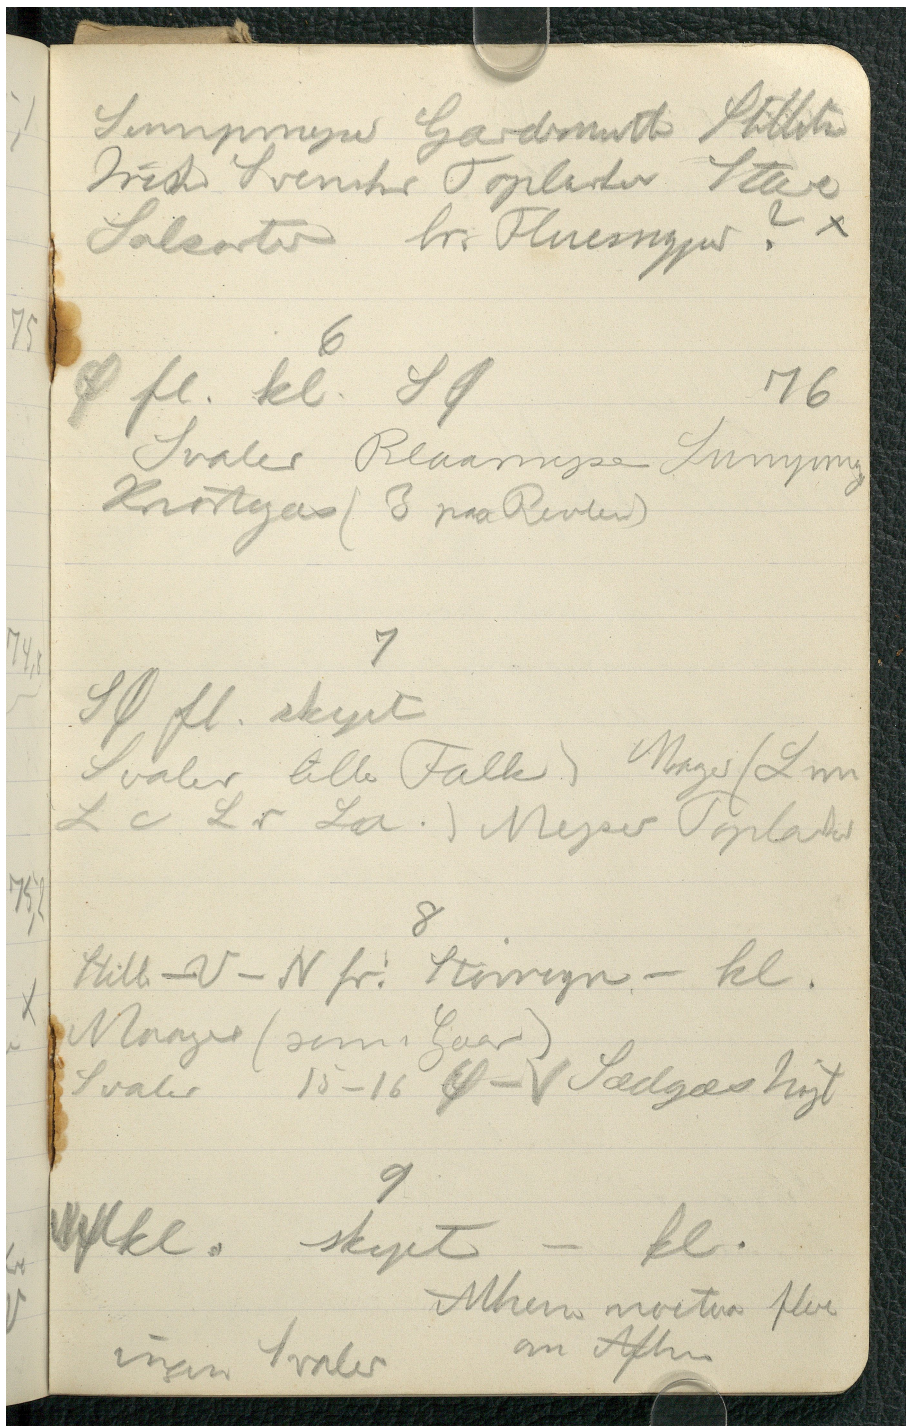 Sumpmejser Gardersmutte Stillitser
Irisker Svenske Toplærker Stære
Solsorter br. Fluesnapper ? x
6
Ø fl. kl. SØ 76
Svaler Blaamejse Sumpmejs
Knortegæs ( 3 paa Revlen )
7
SØ fl. skyet
Svaler lille Falk Maager ( L m
L c L r La . ) Mejser Toplærker
8
Stille - V - N fr. Støvregn - kl.
Maager ( som i Gaar )
Svaler 15-16 Ø - V Sædgæs højt
9
kl. skyet - kl.
flere
ingen Svaler om Aften